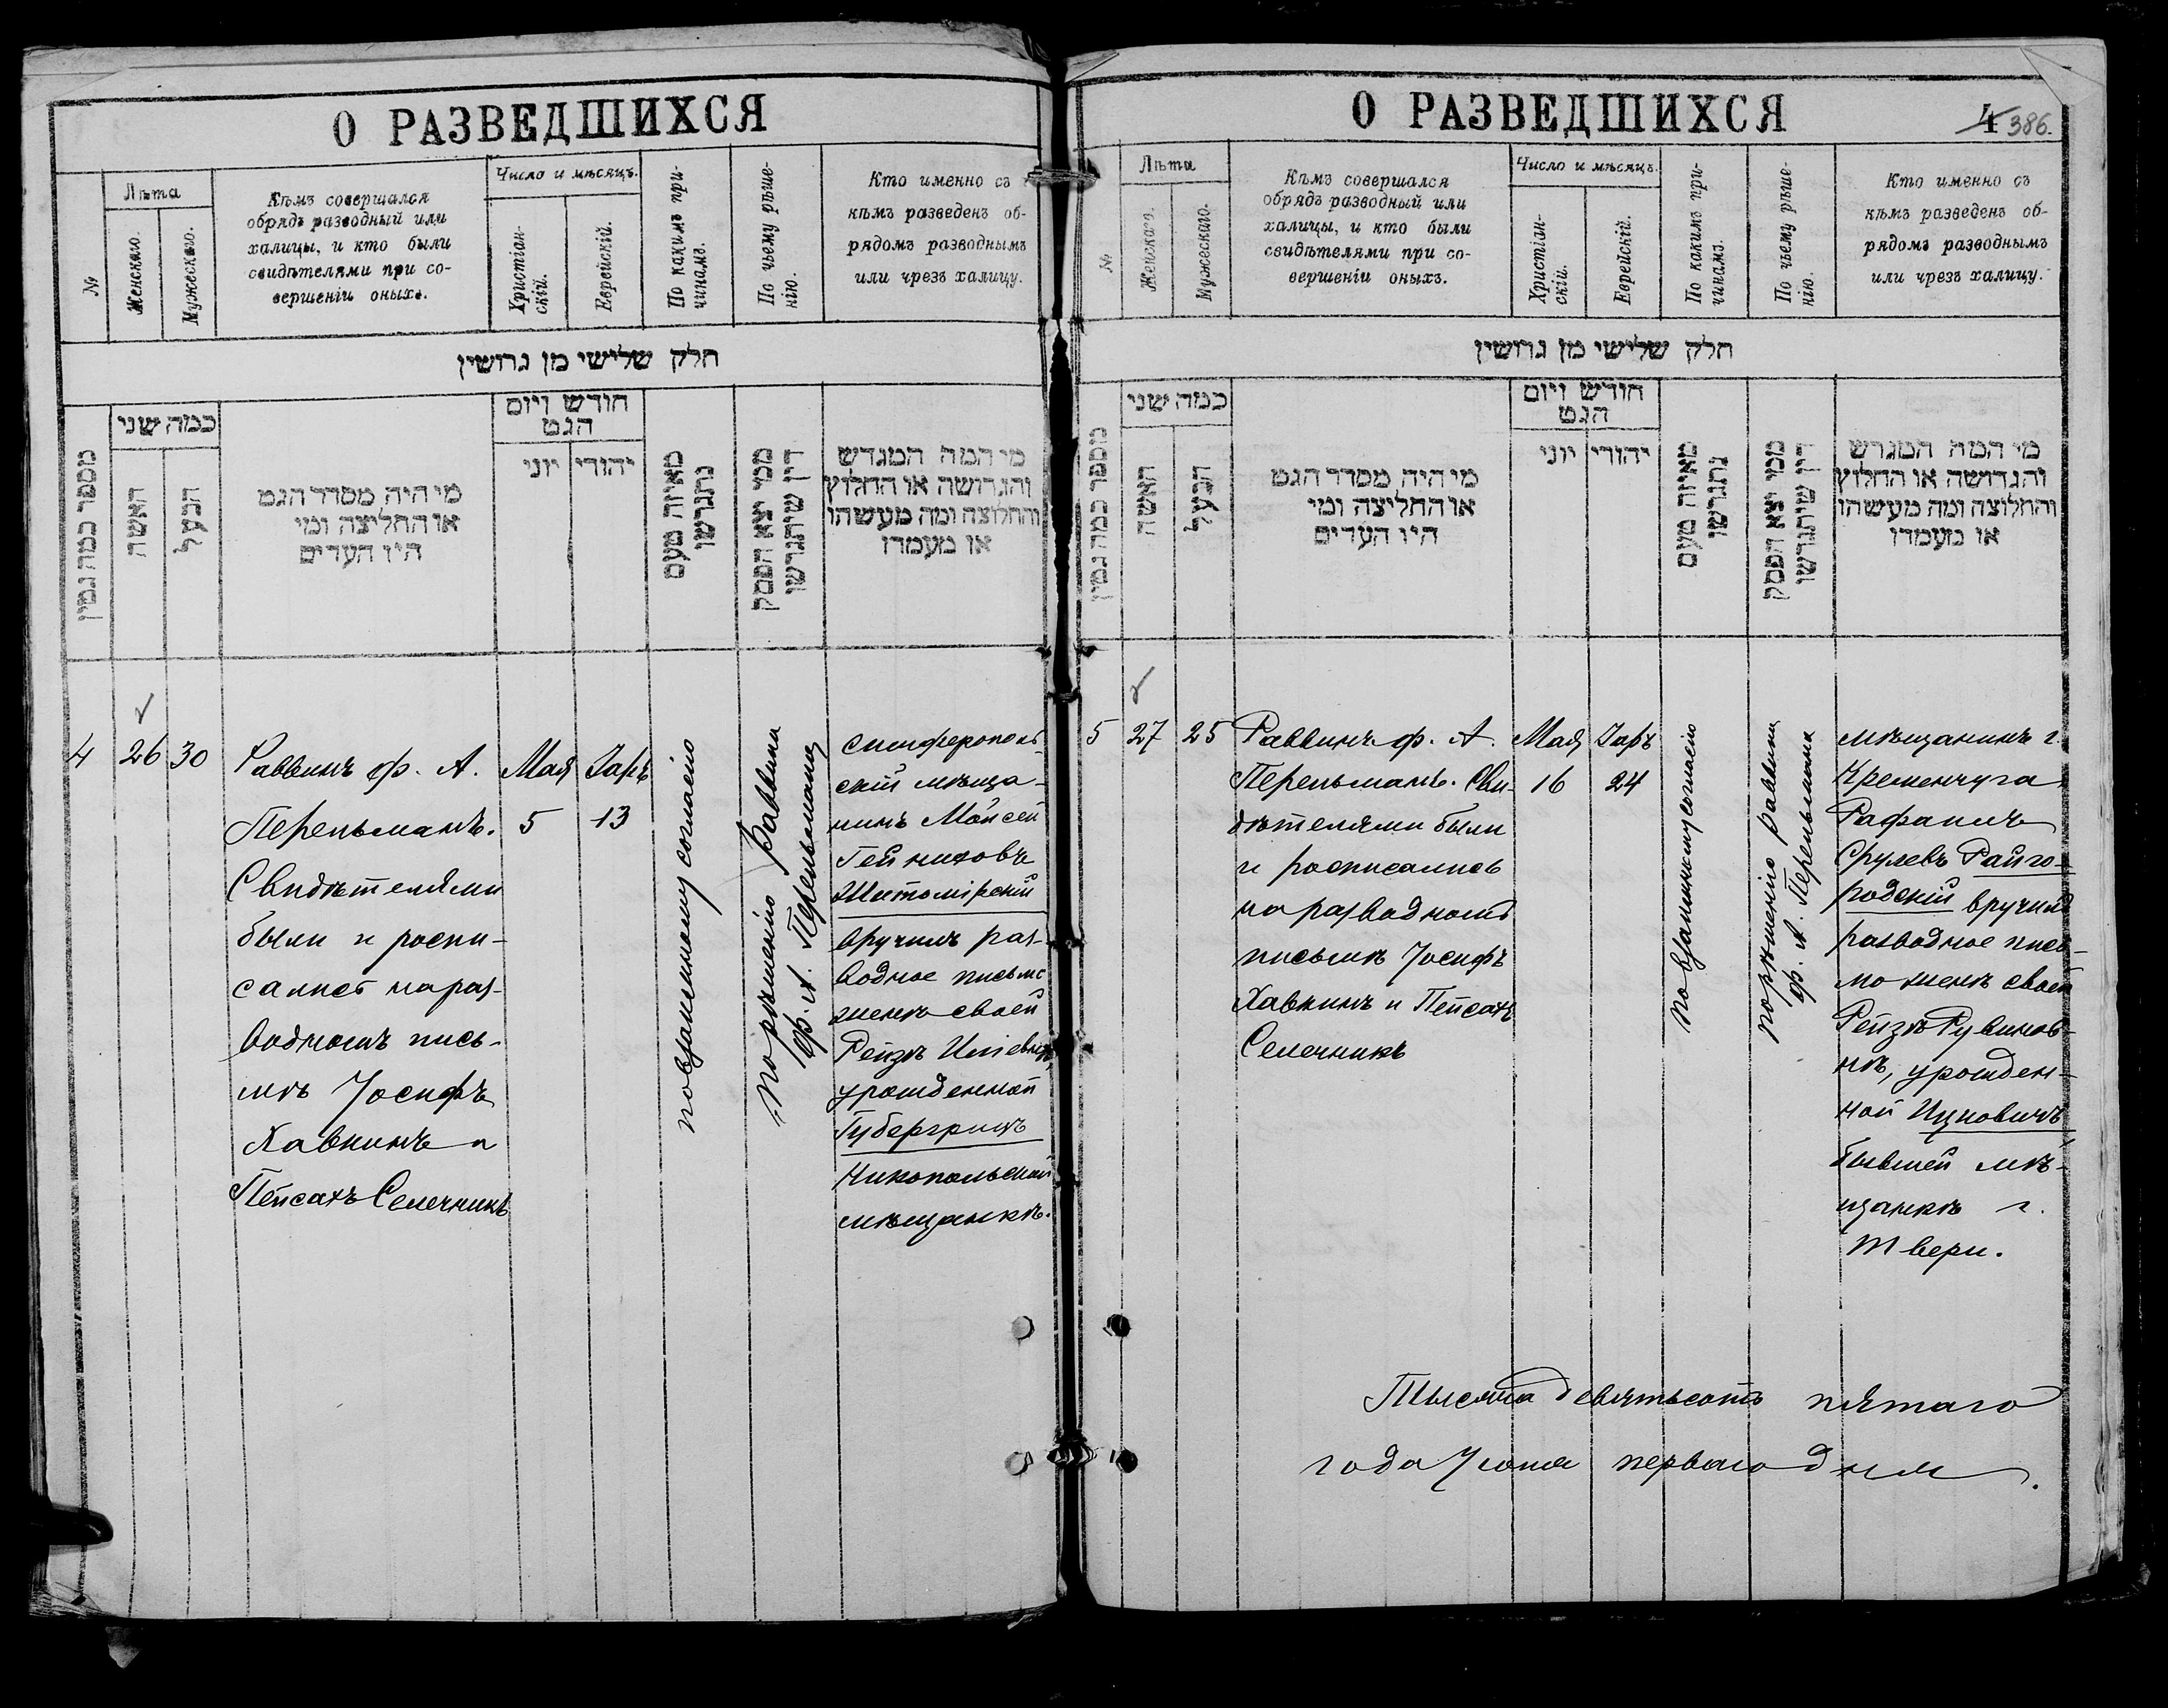 О РАЗВЕДШИХСЯ
№
Лѣта
Женскаго.
Мужескаго.
Кѣмъ совершался
обрядъ разводный или
халицы, и кто были
свидѣтелями при со-
вершеніи оныхъ.
Число и мѣсяцъ.
Христіан-
скій.
Еврейскій.
По какимъ при-
чинамъ.
По чьему рѣше-
нію.
Кто именно съ
кѣмъ разведенъ об-
рядомъ разводнымъ
или чрезъ халицу.
חלק שלישי מן גרושין
מספר כמה גטין
כמה שני
האשה
הבעל
מי היה מסדר הגט
או החליצה ומי
היו העדים
חודש ויום
הגט
יוני
יהודי
מאיזה טעם
נתגרשו
ממי יצא הפסק
דין שיתגרשו
מי המה המגרש
והגרושה או החלוץ
והחלוצה ומה מעשהו
או מעמדו
4
26
30
Раввинъ ф. А.
Перельманъ.
Свидѣтелями
были и роспи-
сались на раз-
водномъ пись-
мѣ Іосифъ
Хавкинъ и
Пейсахъ Селечникъ
Мая
5
Іаръ
13
по взаимному согласію
по рѣшенію раввина
ф. А. Перельмана
симферополь-
скій мѣща-
нинъ Мойсей
Гейниховъ
Житомірскій
вручилъ раз-
водное письмо
женѣ своей
Рейзѣ Иліевнѣ,
урожденной
Губергрицъ
Никопольской
мѣщанкѣ.
О РАЗВЕДШИХСЯ
4 386.
№
Лѣта
Женскаго.
Мужескаго.
Кѣмъ совершался
обрядъ разводный или
халицы, и кто были
свидѣтелями при со-
вершеніи оныхъ.
Число и мѣсяцъ.
Христіан-
скій.
Еврейскій.
По какимъ при-
чинамъ.
По чьему рѣше-
нію.
Кто именно съ
кѣмъ разведенъ об-
рядомъ разводнымъ
или чрезъ халицу.
חלק שלישי מן גרושין
מספר כמה גטין
כמה שני
האשה
הבעל
מי היה מסדר הגט
או החליצה ומי
היו העדים
חודש ויום
הגט
יוני
יהודי
מאיזה טעם
נתגרשו
ממי יצא הפסק
דין שיתגרשו
מי המה המגרש
והגרושה או החלוץ
והחלוצה ומה מעשהו
או מעמדו
5
27
25
Раввинъ ф. А.
Перельманъ. Сви-
дѣтелями были
и росписались
на разводномъ
письмѣ Іосифъ
Хавкинъ и Пейсахъ
Селечникъ
Мая
16
Іаръ
24
по взаимному согласію
по рѣшенію раввина
ф. А. Перельмана
мѣщанинъ г.
Кременчуга
Рафаилъ
Срулевъ Райго-
родскій вручилъ
разводное пись-
мо женѣ своей
Рейзѣ Рувинов-
нѣ, урожден-
ной Ицковичъ
бывшей мѣ-
щанкѣ г.
Твери.
Тысяча девятьсотъ пятаго
года Іюня перваго дня.